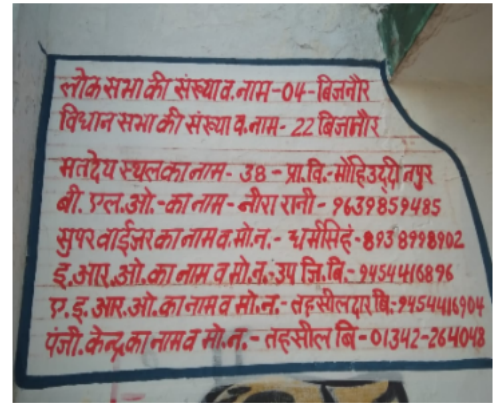 लोक सभा की संख्या व. नाम-04-बिजनौर
विधान सभा की संख्या व. नाम- 22 बिजनौर
मतदेय स्थल का नाम- 38 - प्रा.वि.-मोहिउद्दीनपुर
बी. एल.ओ.-का नाम- नीरा रानी - 9639859485
सुपरवाईजर का नाम व.मो.न.- धर्मसिंह-8938998902
इ.आर.ओ.का नाम व मो.न.-उप जि.बि.-9454416896
ए.इ.आर.ओ.का नाम व मो.न.-तहसीलदार बि.-9454416904
पंजी.केन्द्र का नाम व मो.न.- तहसील बि-01342-264048